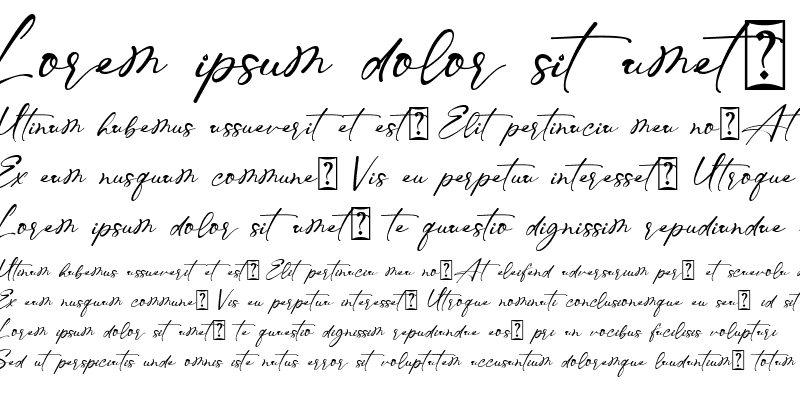 Lorem ipsum dolor sit amet�
Utinam habemus assueverit et est� Elit pertinacia mea no� At
Ex eam nusquam commune� Vis eu perpetua interesset� Utroque
Lorem ipsum dolor sit amet� te quaestio dignissim repudiandae
Utinam habemus assueverit et est� Elit pertinacia mea no� At eleifend adversarium per� et scaevola
Ex eam nusquam commune� Vis eu perpetua interesset� Utroque nominati conclusionemque eu sea� id sit
Lorem ipsum dolor sit amet� te quaestio dignissim repudiandae eos� pri an vocibus facilisis voluptari
Sed ut perspiciatis unde omnis iste natus error sit voluptatem accusantium doloremque laudantium� totam